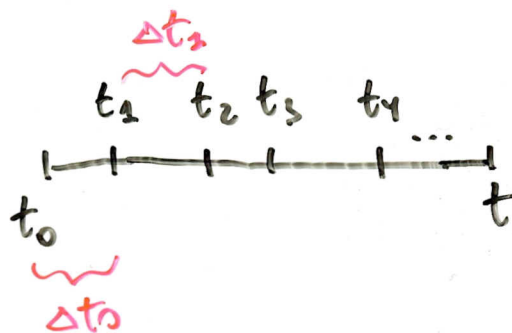 Δt₁
t₁ t₂ t₃ t₄ ...
t₀ t
Δt₀